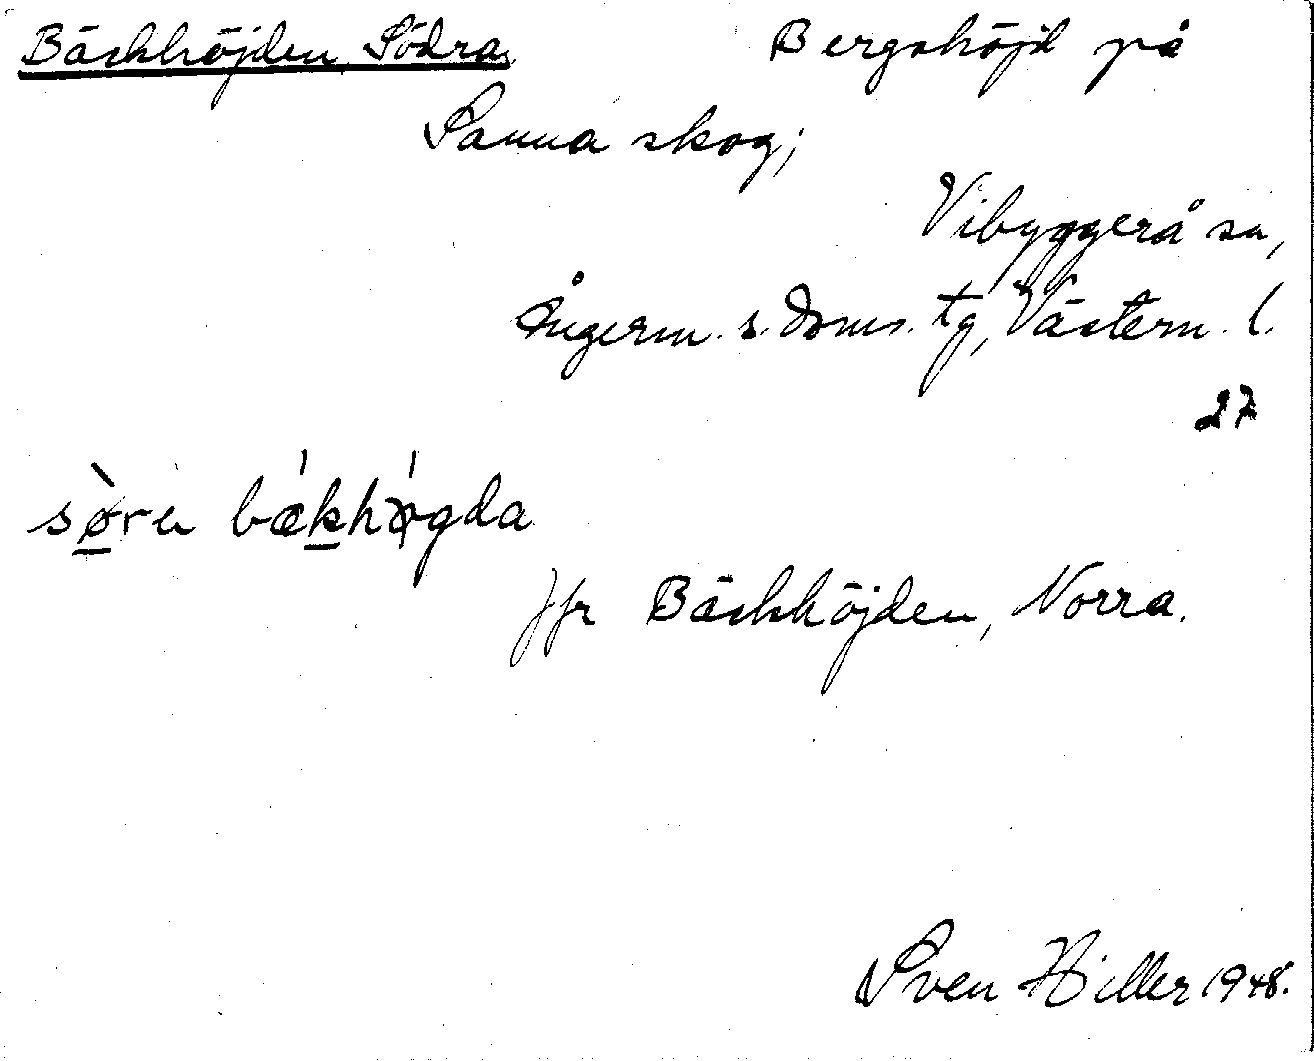 Bäckhöjden, Södra. Bergshöjd på
Sanna skog;
Vibyggerå sn,
Ångerm. s. doms. tg, Västern. l.
27
sø̀ra bǽkhǿgda
Jfr Bäckhöjden, Norra.
Sven Hiller 1948.